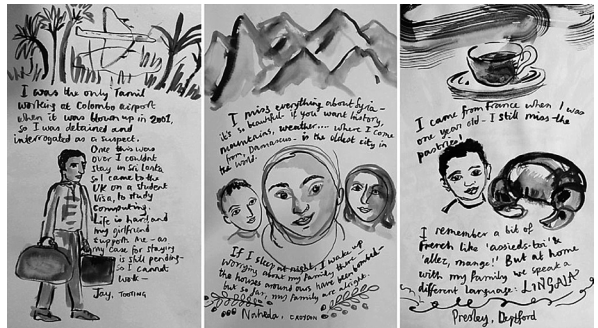 I was the only Tamil
working at Colombo airport
when it was blown up in 2001,
so I was detained and
interrogated as a suspect.
Once this was
over I couldn't
stay in Sri Lanka
so I came to the
UK on a student
visa, to study
computing.
Life is hard and
my girlfriend
supports me - as
my case for staying
is still pending-
so I cannot
work -
Jay, TOOTING
I miss everything about Syria -
it's so beautiful if you want history,
mountains, weather.... where I come
from, Damascus - is the oldest city in
the world.
If I sleep at night, I wake up
worrying about my family there -
the houses around ours have been bombed -
but so far, my family are alright.
Naheda, CROYDON
I came from France when I was
one year old - I still miss the
pastries!
I remember a bit of
French like 'assieds-toi' &
'allez, mange!' But at home
with my family we speak a
different language: LINGALA
Presley, Deptford